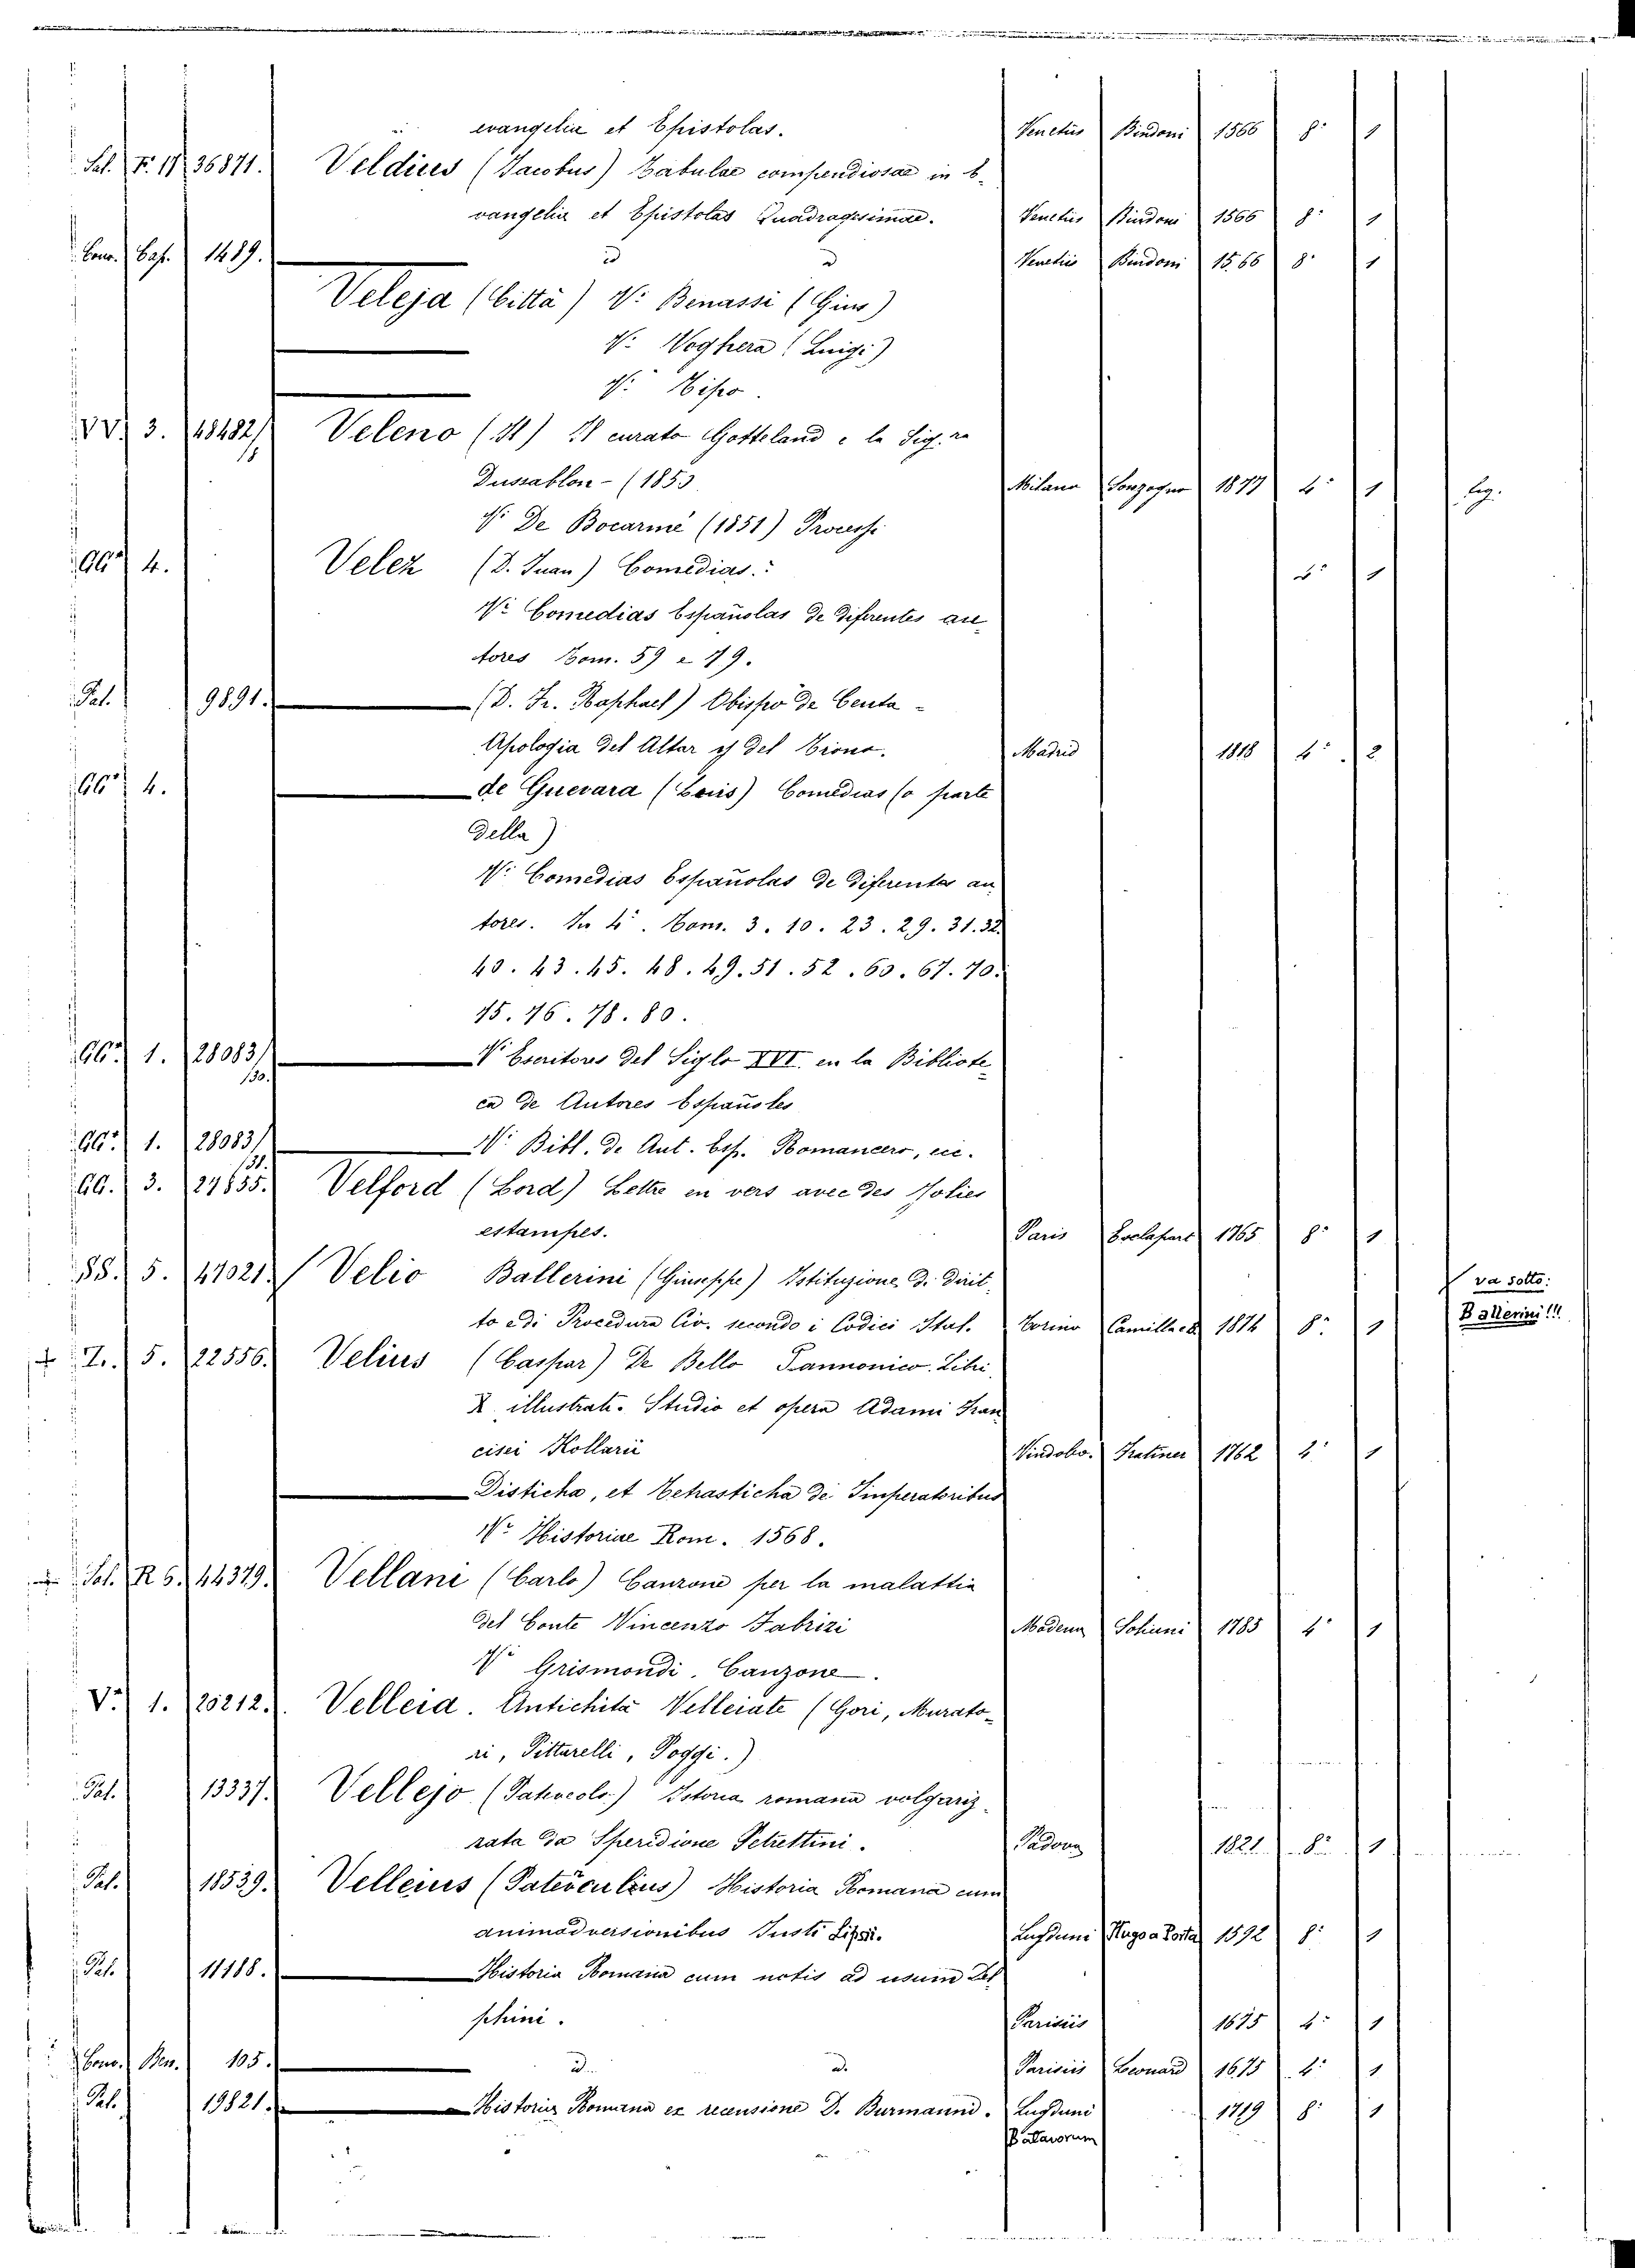 evangelia et Epistolas. Venetiis Bindoni 1566 8° 1
Sal. F. 17 36871. Veldius (Jacobus) Tabulae compendiosae in E-
vangelia et Epistolas Quadragesimae. Venetiis Bindoni 1566 8° 1
Conv. Cap. 1489. id id Venetiis Bindoni 1566 8° 1
Veleja (Città) V. Benassi (Gius)
V. Voghera (Luigi)
V. Tipo.
VV. 3. 48482/ Veleno (Il) Il curato Gotteland e la Sig.ra
Dussablon - (1850 Milano Sonzogno 1877 4° 1 leg.
V. De Bocarmé (1851) Processi
4. Velez (D. Juan) Comedias. 4° 1
V. Comedias Españolas de diferentes au-
tores Tom. 59 e 79.
Pal. 9891. (D. Fr. Raphael) Obispo de Ceuta -
Apologia del Altar y del Trono. Madrid 1818 4° 2
4. de Guevara (Luis) Comedias (o parte
della)
V. Comedias Españolas de diferentes au
tores. In 4°. Tom. 3. 10. 23. 29. 31. 32.
40. 43. 45. 48. 49. 51. 52. 60. 67. 70.
75. 76. 78. 80.
1. 28083/130. V. Escritores del Siglo XVI. en la Bibliote-
ca de Autores Españoles
1. 28083/131. V. Bibl. de Aut. Esp. Romancero, etc.
3. 27855. Velford (Lord) Lettre en vers avec des jolies
estampes. Paris Esclapart 1765 8° 1
5. 47021. Velio Ballerini (Giuseppe) Istituzione di Dirit-
to e di Procedura Civ. secondo i Codici Ital. Torino Camilla 1874 8° 1 va sotto: Ballerini!!!
5. 22556. Velius (Caspar) De Bello Pannonico. Libri
X illustrati. Studio et opera Adami Fran
cisci Kollarii Vindobo. Tratiner 1762 4° 1
Disticha, et Tetrasticha de Imperatoribus
V. Historiae Rom. 1568.
Sal. R 6. 44379. Vellani (Carlo) Canzone per la malattia
del Conte Vincenzo Fabrizi Modena Soliani 1785 4° 1
V. Grismondi. Canzone.
V. 1. 20212. Velleia. Antichità Velleiate (Gori, Murato-
ri, Pittarelli, Poggi.)
Pal. 13337. Vellejo (Patercolo) Istoria romana volgariz-
zata da Speridione Petrettini. Padova 1821 8° 1
Pal. 18539. Velleius (Paterculus) Historia Romana cum
animadversionibus Justi Lipsi. Lugduni Hugo a Porta 1592 8° 1
Pal. 11188. Historia Romana cum notis ad usum Del
phini. Parisiis 1675 4° 1
Conv. Ben. 105. id. id. Parisiis Leonard 1675 4° 1
Pal. 19821. Historia Romana ex recensione D. Burmanni. Lugduni Batavorum 1719 8° 1